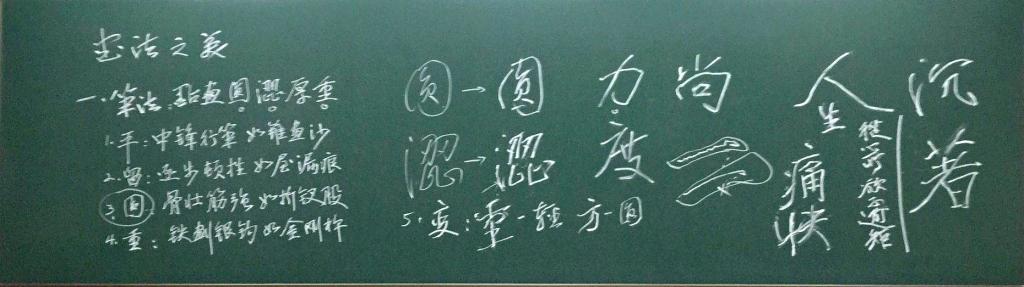 书法之美
一、笔法:点画圆涩厚重
1.平:中锋行笔 如锥画沙
2.留:逐步顿挫 如屋漏痕
3.圆:骨壮筋强 如折钗股
4.重:铁划银钩 如金刚杵
圆→圆
涩→涩
力度
尚
5.变:重-轻 方-圆
人生
痛快
沉著